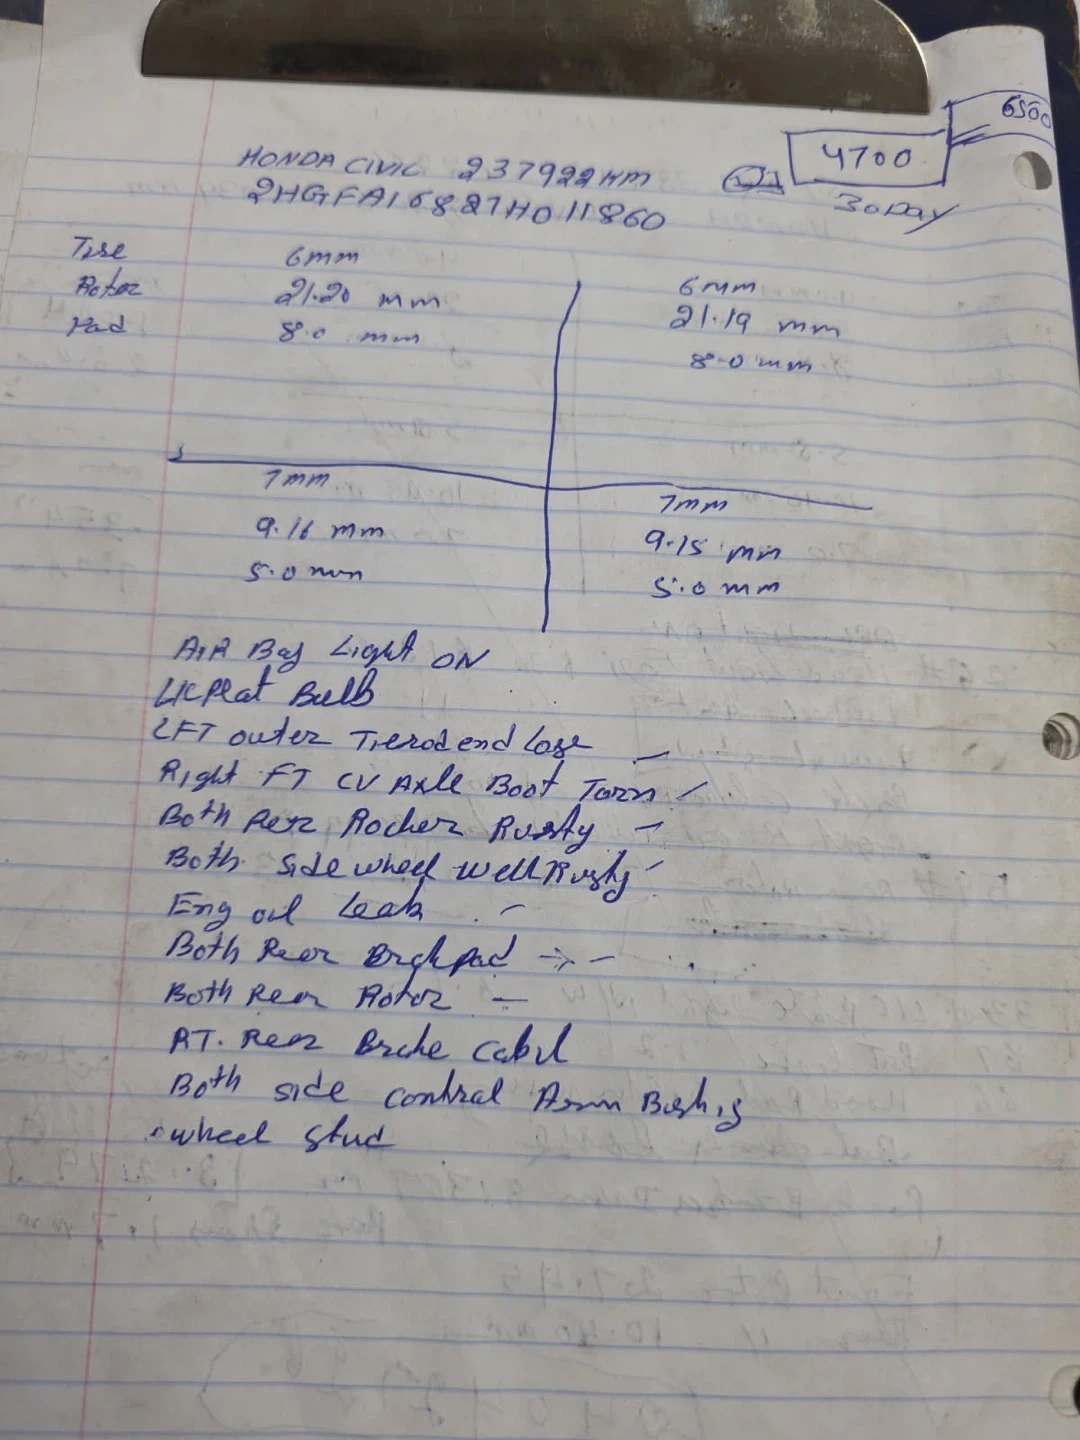 6500
4700
30 Day
HONDA CIVIC 237922 KM
2HGFA16827H011860
Tire 6mm 6mm
Rotor 21.20 mm 21.19 mm
Pad 8.0 mm 8.0 mm
7mm 7mm
9.16 mm 9.15 mm
5.0 mm 5.0 mm
AIR Bag Light ON
LICPlat Bulb
LFT outer Tierod end Lose
Right FT CV Axle Boot Torn
Both Rer Rocker Rusty
Both side wheel well Rusty
Eng oil Leak
Both Rear Brakpad
Both Rear Rotor
RT. Rear Brake Cabil
Both side control Arm Bushig
wheel stud